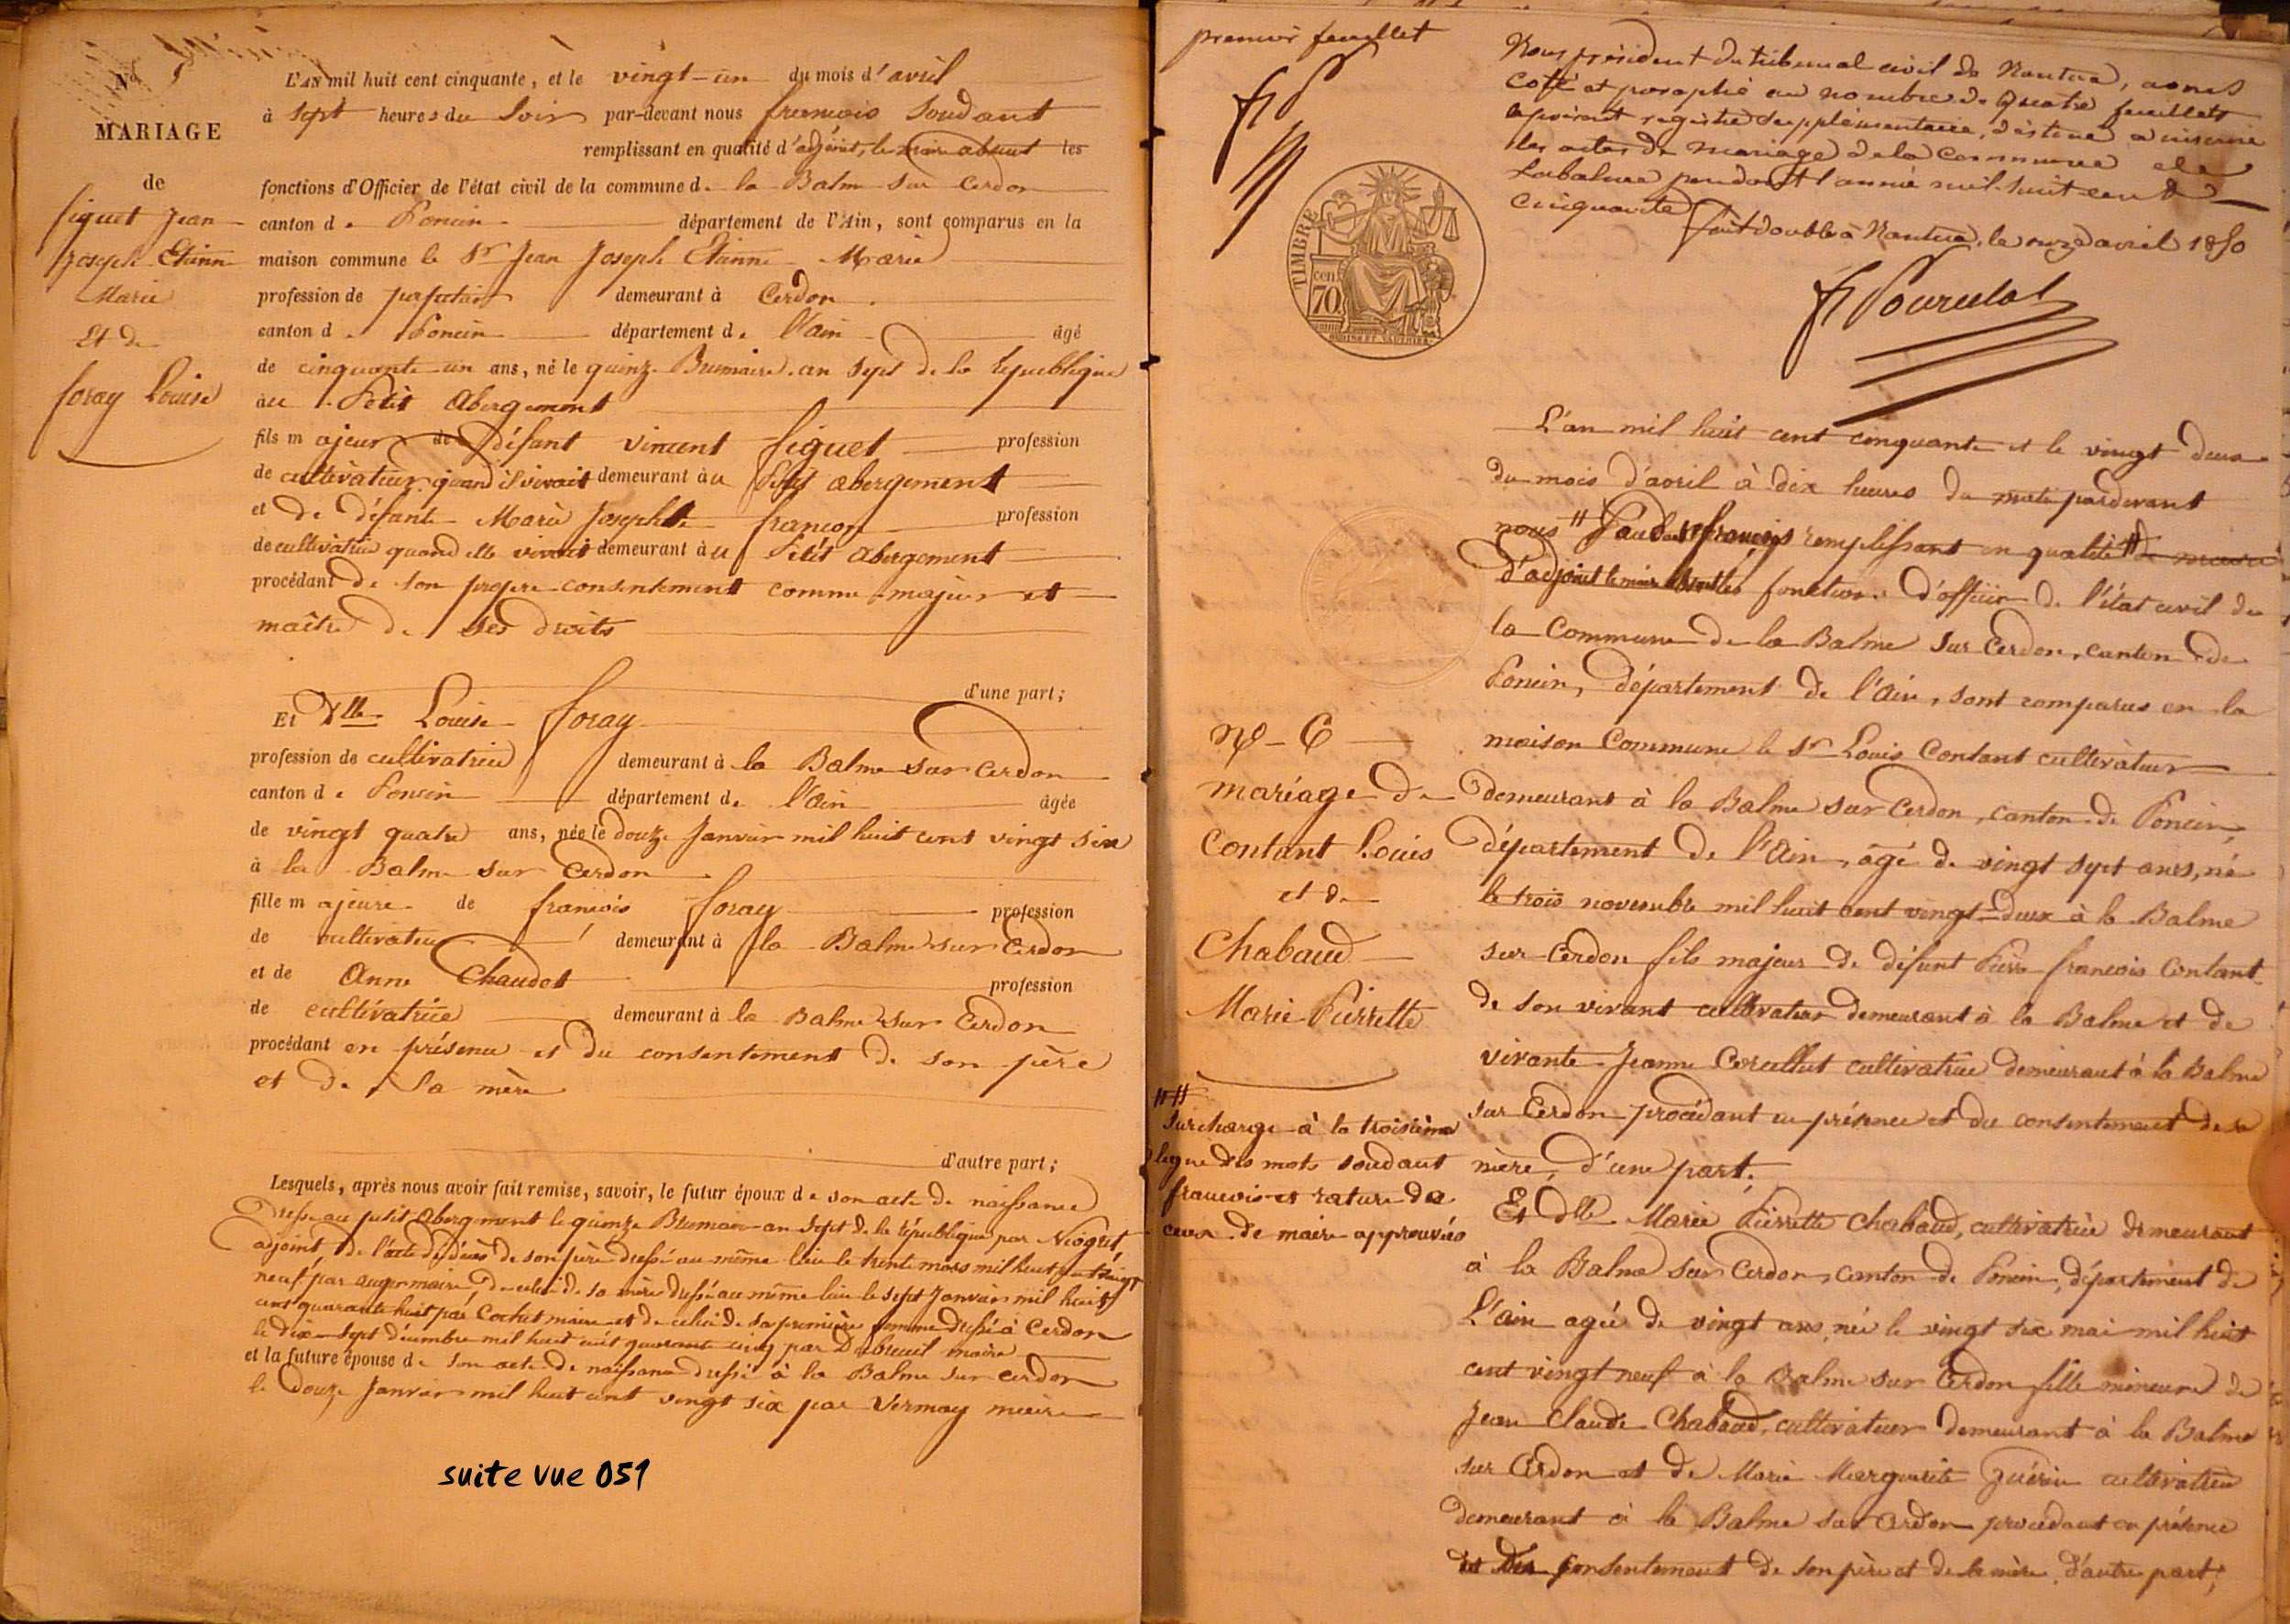 Nº 5
MARIAGE
de
figuet Jean
Joseph Etienne
Marie
Et de
foray Louise
L'AN mil huit cent cinquante, et le vingt-un du mois d'avril
à sept heures du soir par-devant nous francois Soudant
remplissant en qualité d'adjoint, le maire absent les
fonctions d'Officier de l'état civil de la commune de la Balme sur Cerdon
canton de Poncin département de l'Ain, sont comparus en la
maison commune le Sr Jean Joseph Etienne Marie
profession de demeurant à Cerdon
canton de Poncin département de l'ain âgé
de cinquante un ans, né le quinze Brumaire an Sept de la République
au Petit Abergement
fils majeur de défunt vincent figuet profession
de cultivateur quand il vivait demeurant au Petit abergement
et de défunte Marie Josephte francon profession
de cultivatrice quand elle vivait demeurant au Petit abergement
procédant de son propre consentement comme majeur et
maître de ses droits
d'une part;
Et Dlle Louise foray
profession de cultivatrice demeurant à la Balme sur Cerdon
canton de Poncin département de l'ain âgée
de vingt quatre ans, née le douze Janvier mil huit cent vingt six
à la Balme sur Cerdon
fille majeure de francois foray profession
de cultivateur demeurant à la Balme sur Cerdon
et de Anne Chaudet profession
de cultivatrice demeurant à la Balme sur Cerdon
procédant en présence et du consentement de son père
et de sa mère
d'autre part;
Lesquels, après nous avoir fait remise, savoir, le futur époux de son acte de naissance
Dressé au petit Abergement le quinze Brumaire an Sept de la république par Niogret
adjoint, de l'acte de décès de son père dressé au même lieu le trente mars mil huit cent vingt
neuf par auger maire, de celui de sa mère dressé au même lieu le sept Janvier mil huit
cent quarante huit par Cochet maire et de celui de sa première femme dressé à Cerdon
le dix-sept décembre mil huit cent quarante cinq par Dubreuil maire
et la future épouse de son acte de naissance dressé à la Balme sur cerdon
le douze Janvier mil huit cent vingt six par Vermay maire
suite vue 051
premier feuillet
TIMBRE
70 cen.
Nous président du tribunal civil de Nantua, avons
coté et paraphé au nombre de quatre feuillets
le présent registre supplémentaire, destiné a inscrire
les actes de mariage de la commune de
Labalme pendant l'année mil huit cent
cinquante
fait double à Nantua, le onze avril 1850
L'an mil huit cent cinquante et le vingt deux
du mois d'avril à dix heures du matin pardevant
nous Soudant francois remplissant en qualité de maire
d'adjoint le maire absent les fonctions d'officier de l'état civil de
la Commune de la Balme sur Cerdon, canton de
Poncin, département de l'Ain, sont comparus en la
maison Commune le Sr Louis Contant cultivateur
demeurant à la Balme sur Cerdon, canton de Poncin,
département de l'Ain, âgé de vingt sept ans, né
le trois novembre mil huit cent vingt-deux à la Balme
sur-Cerdon fils majeur de défunt Pierre francois Contant
de son vivant cultivateur demeurant à la Balme et de
vivante Jeanne cultivatrice demeurant à la Balme
sur Cerdon procédant en présence et du consentement de sa
mère, d'une part;
Et Dlle Marie Pierrette Chabaud, cultivatrice demeurant
à la Balme sur Cerdon, canton de Poncin, département de
l'Ain agée de vingt ans, née le vingt six mai mil huit
cent vingt neuf à la Balme sur Cerdon fille mineure de
Jean Claude Chabaud, cultivateur demeurant à la Balme
sur Cerdon et de Marie Marguerite Guérin cultivatrice
demeurant à la Balme sur Cerdon procédant en présence
et du consentement de son père et de sa mère, d'autre part;
nº 6
mariage de
Contant Louis
et de
Chabaud
Marie Pierrette
surcharge à la troisième
ligne des mots soudant
francois et rature de
ceux de maire approuvés